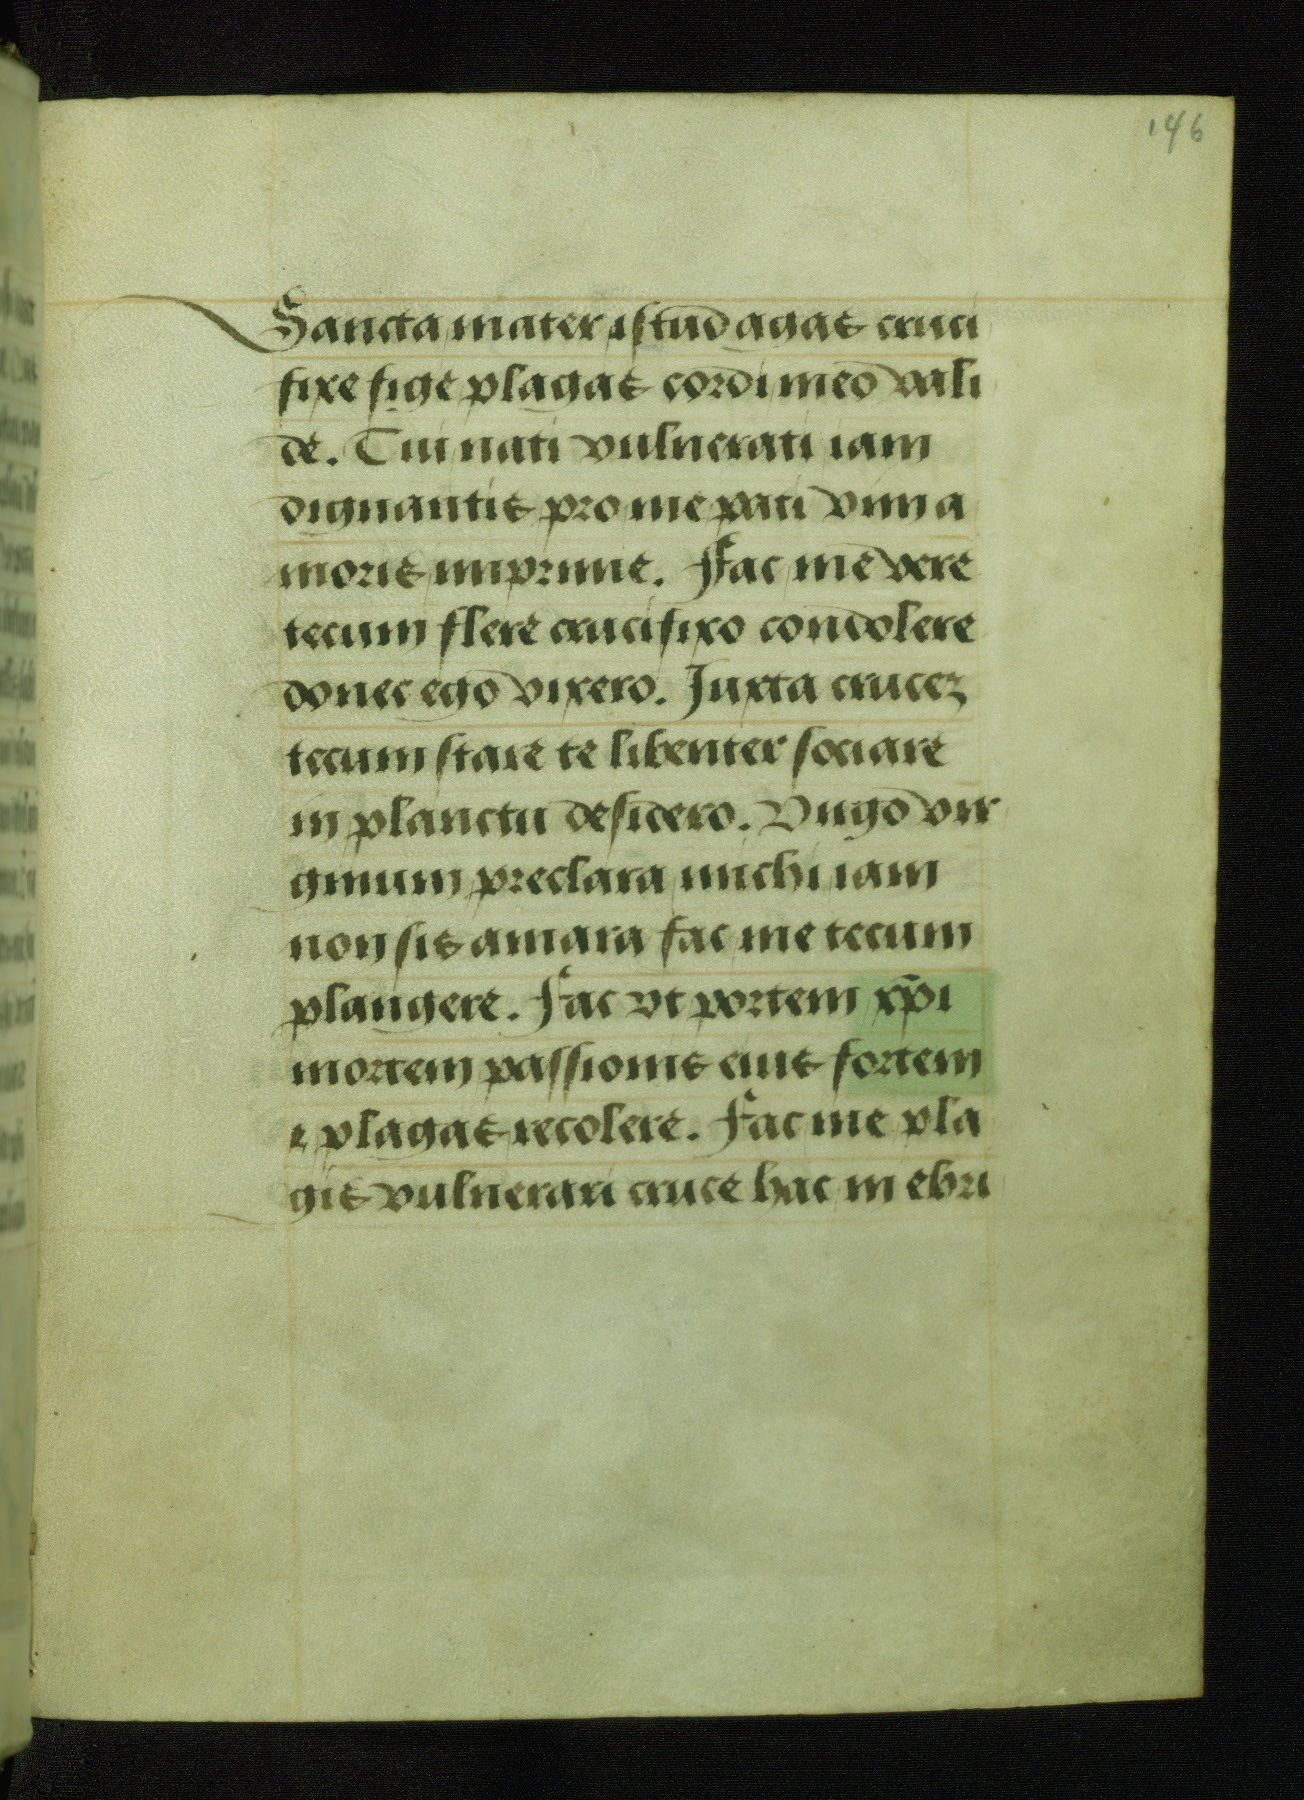 146
Sancta mater istud agas cruci
fixe fige plagas cordi meo vali
de. Tui nati vulnerati iam
dignantis pro me pati vim a
moris imprime. Fac me vere
tecum flere crucifixo condolere
donec ego vixero. Juxta crucez
tecum stare te libenter sociare
in planctu desidero. Virgo vir
ginum preclara michi iam
non sis amara fac me tecum
plangere. Fac vt portem xp̄i
mortem passionis eius fortem
⁊ plagas recolere. Fac me pla
gis vulnerari cruce hac inebri